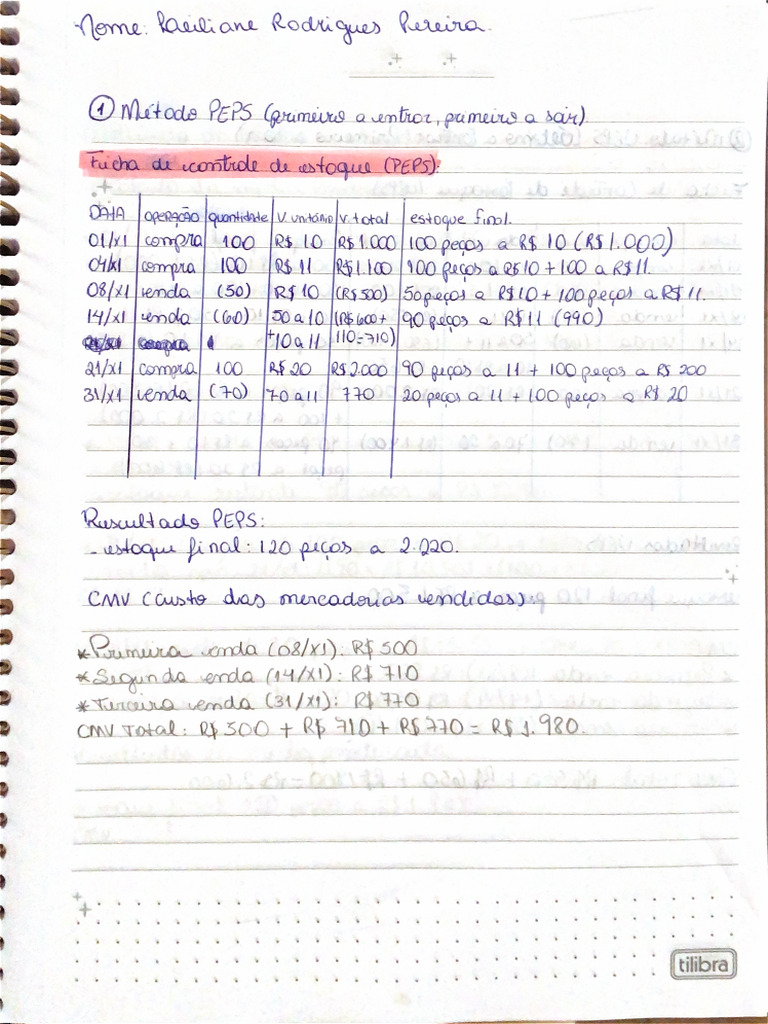 Nome: Raeiliane Rodrigues Pereira.
① Método PEPS (primeiro a entrar, primeiro a sair).
Ficha de controle de estoque (PEPS):
DATA operação quantidade V. unitário V. total estoque final.
01/x1 compra 100 R$ 10 R$ 1.000 100 peças a R$ 10 (R$ 1.000)
04/x1 compra 100 R$ 11 R$ 1.100 100 peças a R$10 + 100 a R$ 11.
08/x1 venda (50) R$ 10 (R$ 500) 50 peças a R$10 + 100 peças a R$ 11.
14/x1 venda (60) 50 a 10 (R$ 600 + 90 peças a R$ 11 (990)
+10 a 11 110=710)
21/x1 compra 100 R$ 20 R$ 2.000 90 peças a 11 + 100 peças a R$ 200
31/x1 venda (70) 70 a 11 770 20 peças a 11 + 100 peças a R$ 20
Resultado PEPS:
- estoque final: 120 peças a 2.220.
CMV (custo das mercadorias vendidas).
*Primeira venda (08/x1): R$ 500
*Segunda venda (14/x1): R$ 710
*Terceira venda (31/x1): R$ 770
CMV Total: R$ 500 + R$ 710 + R$ 770 = R$ 1.980.
tilibra